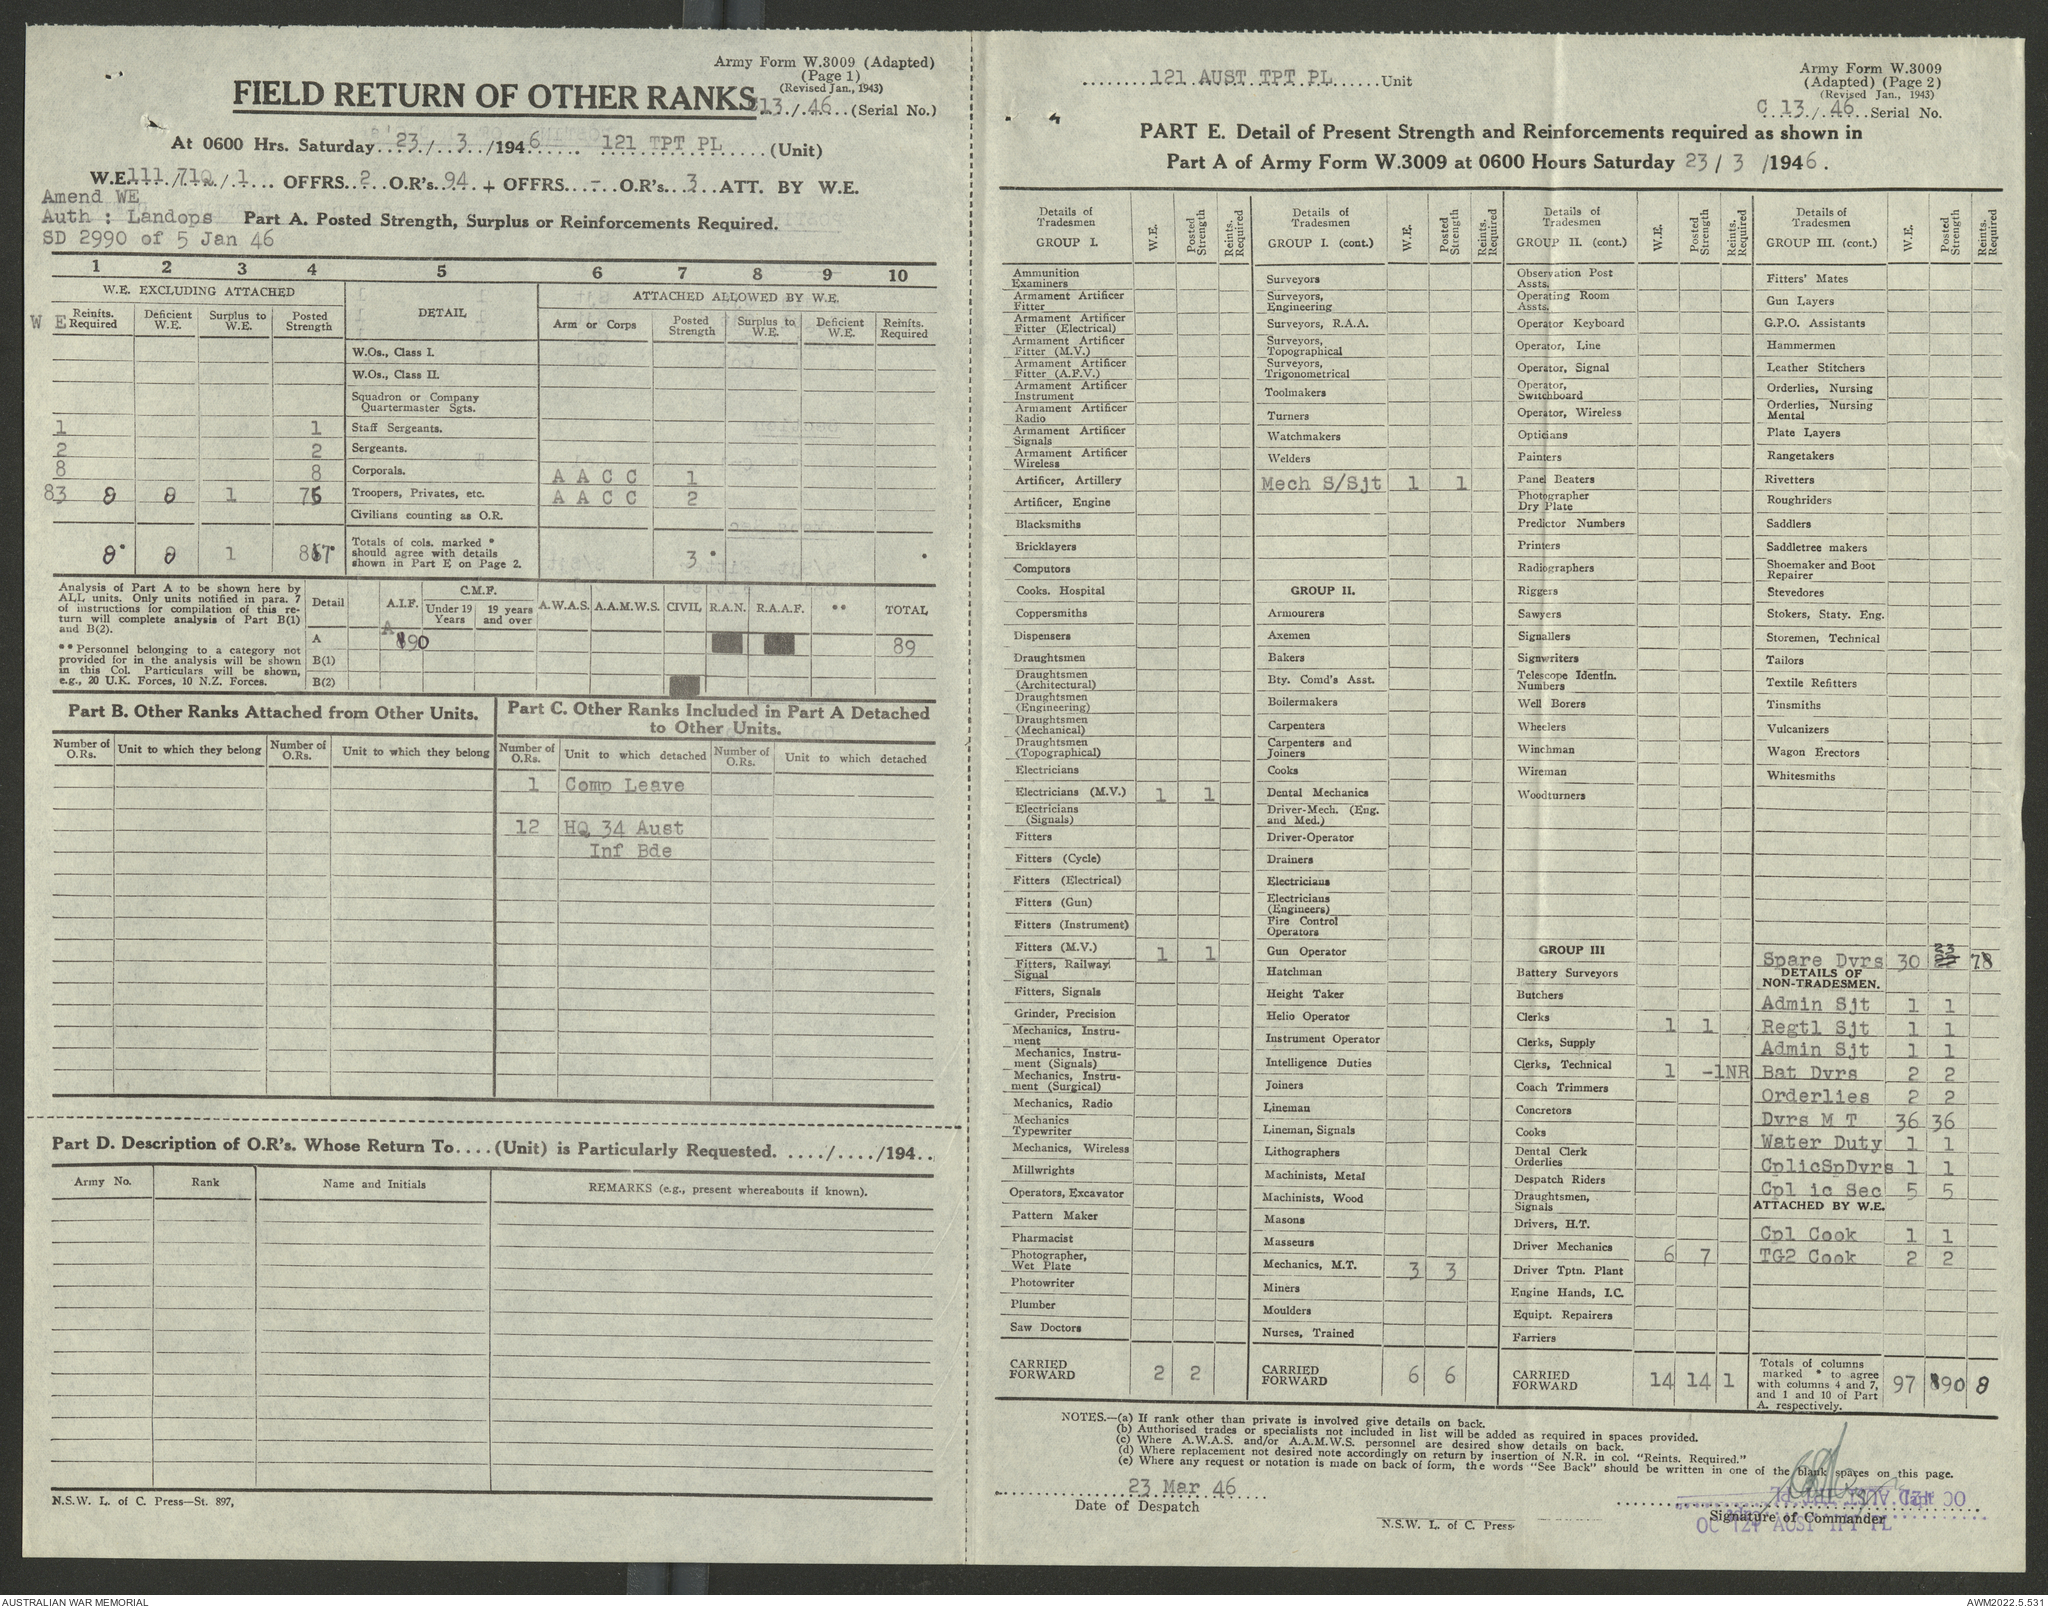 Army Form W.3009 (Adapted)
(Page 1)
(Revised Jan., 1943)
FIELD RETURN OF OTHER RANKS
13./.46...(Serial No.)
At 0600 Hrs. Saturday 23/ 3 /1946 121 TPT PL (Unit)
W.E. 111/710/1 OFFRS 2 O.R's 94 + OFFRS - O.R's 3 ATT. BY W.E.
Amend WE
Auth : Landops
SD 2990 of 5 Jan 46
Part A. Posted Strength, Surplus or Reinforcements Required.
1 2 3 4 5 6 7 8 9 10
W.E. EXCLUDING ATTACHED DETAIL ATTACHED ALLOWED BY W.E.
W E Reinfts. Required Deficient W.E. Surplus to W.E. Posted Strength Arm or Corps Posted Strength Surplus to W.E. Deficient W.E. Reinfts. Required
W.Os., Class I.
W.Os., Class II.
Squadron or Company Quartermaster Sgts.
1 1 Staff Sergeants.
2 2 Sergeants.
8 8 Corporals. A A C C 1
83 8 8 1 Troopers, Privates, etc. A A C C 2
Civilians counting as O.R.
8 8 1 Totals of cols. marked * should agree with details shown in Part E on Page 2. 3
Analysis of Part A to be shown here by ALL units. Only units notified in para. 7 of instructions for compilation of this return will complete analysis of Part B(1) and B(2).
** Personnel belonging to a category not provided for in the analysis will be shown in this Col. Particulars will be shown, e.g., 20 U.K. Forces, 10 N.Z. Forces.
Detail A.I.F. C.M.F. Under 19 Years 19 years and over A.W.A.S. A.A.M.W.S. CIVIL R.A.N. R.A.A.F. ** TOTAL
A 90 89
B(1)
B(2)
Part B. Other Ranks Attached from Other Units.
Number of O.Rs. Unit to which they belong Number of O.Rs. Unit to which they belong
Part C. Other Ranks Included in Part A Detached to Other Units.
Number of O.Rs. Unit to which detached Number of O.Rs. Unit to which detached
1 Comp Leave
12 HQ 34 Aust
Inf Bde
Part D. Description of O.R's. Whose Return To....(Unit) is Particularly Requested. ..../..../194..
Army No. Rank Name and Initials REMARKS (e.g., present whereabouts if known).
N.S.W. L. of C. Press—St. 897,
121 AUST TPT PL Unit
Army Form W.3009
(Adapted) (Page 2)
(Revised Jan., 1943)
C 13/46 Serial No.
PART E. Detail of Present Strength and Reinforcements required as shown in
Part A of Army Form W.3009 at 0600 Hours Saturday 23/ 3 /1946.
Details of Tradesmen GROUP I. W.E. Posted Strength Reints. Required
Ammunition Examiners
Armament Artificer Fitter
Armament Artificer Fitter (Electrical)
Armament Artificer Fitter (M.V.)
Armament Artificer Fitter (A.F.V.)
Armament Artificer Instrument
Armament Artificer Radio
Armament Artificer Signals
Armament Artificer Wireless
Artificer, Artillery
Artificer, Engine
Blacksmiths
Bricklayers
Computors
Cooks, Hospital
Coppersmiths
Dispensers
Draughtsmen
Draughtsmen (Architectural)
Draughtsmen (Engineering)
Draughtsmen (Mechanical)
Draughtsmen (Topographical)
Electricians
Electricians (M.V.) 1 1
Electricians (Signals)
Fitters
Fitters (Cycle)
Fitters (Electrical)
Fitters (Gun)
Fitters (Instrument)
Fitters (M.V.) 1 1
Fitters, Railway Signal
Fitters, Signals
Grinder, Precision
Mechanics, Instrument
Mechanics, Instrument (Signals)
Mechanics, Instrument (Surgical)
Mechanics, Radio
Mechanics Typewriter
Mechanics, Wireless
Millwrights
Operators, Excavator
Pattern Maker
Pharmacist
Photographer, Wet Plate
Photowriter
Plumber
Saw Doctors
CARRIED FORWARD 2 2
Details of Tradesmen GROUP I. (cont.) W.E. Posted Strength Reints. Required
Surveyors
Surveyors, Engineering
Surveyors, R.A.A.
Surveyors, Topographical
Surveyors, Trigonometrical
Toolmakers
Turners
Watchmakers
Welders
Mech S/Sjt 1 1
GROUP II.
Armourers
Axemen
Bakers
Bty. Comd's Asst.
Boilermakers
Carpenters
Carpenters and Joiners
Cooks
Dental Mechanics
Driver-Mech. (Eng. and Med.)
Driver-Operator
Drainers
Electricians
Electricians (Engineers)
Fire Control Operators
Gun Operator
Hatchman
Height Taker
Helio Operator
Instrument Operator
Intelligence Duties
Joiners
Lineman
Lineman, Signals
Lithographers
Machinists, Metal
Machinists, Wood
Masons
Masseurs
Mechanics, M.T. 3 3
Miners
Moulders
Nurses, Trained
CARRIED FORWARD 6 6
Details of Tradesmen GROUP II. (cont.) W.E. Posted Strength Reints. Required
Observation Post Assts.
Operating Room Assts.
Operator Keyboard
Operator, Line
Operator, Signal
Operator, Switchboard
Operator, Wireless
Opticians
Painters
Panel Beaters
Photographer Dry Plate
Predictor Numbers
Printers
Radiographers
Riggers
Sawyers
Signallers
Signwriters
Telescope Identfn. Numbers
Well Borers
Wheelers
Winchman
Wireman
Woodturners
GROUP III
Battery Surveyors
Butchers
Clerks 1 1
Clerks, Supply
Clerks, Technical 1 -1NR
Coach Trimmers
Concretors
Cooks
Dental Clerk Orderlies
Despatch Riders
Draughtsmen, Signals
Drivers, H.T.
Driver Mechanics 6 7
Driver Tptn. Plant
Engine Hands, I.C.
Equipt. Repairers
Farriers
CARRIED FORWARD 14 14 1
Details of Tradesmen GROUP III. (cont.) W.E. Posted Strength Reints. Required
Fitters' Mates
Gun Layers
G.P.O. Assistants
Hammermen
Leather Stitchers
Orderlies, Nursing
Orderlies, Nursing Mental
Plate Layers
Rangetakers
Rivetters
Roughriders
Saddlers
Saddletree makers
Shoemaker and Boot Repairer
Stevedores
Stokers, Staty. Eng.
Storemen, Technical
Tailors
Textile Refitters
Tinsmiths
Vulcanizers
Wagon Erectors
Whitesmiths
Spare Dvrs 30 23 78
DETAILS OF NON-TRADESMEN.
Admin Sjt 1 1
Regtl Sjt 1 1
Admin Sjt 1 1
Bat Dvrs 2 2
Orderlies 2 2
Dvrs M T 36 36
Water Duty 1 1
CplicSpDvrs 1 1
Cpl ic Sec 5 5
ATTACHED BY W.E.
Cpl Cook 1 1
TG2 Cook 2 2
Totals of columns marked * to agree with columns 4 and 7, and 1 and 10 of Part A. respectively. 97 90 8
NOTES.—(a) If rank other than private is involved give details on back.
(b) Authorised trades or specialists not included in list will be added as required in spaces provided.
(c) Where A.W.A.S. and/or A.A.M.W.S. personnel are desired show details on back.
(d) Where replacement not desired note accordingly on return by insertion of N.R. in col. "Reints. Required."
(e) Where any request or notation is made on back of form, the words "See Back" should be written in one of the blank spaces on this page.
23 Mar 46
Date of Despatch
N.S.W. L. of C. Press
Signature of Commander
OC 121 AUST TPT PL
AUSTRALIAN WAR MEMORIAL
AWM2022.5.531